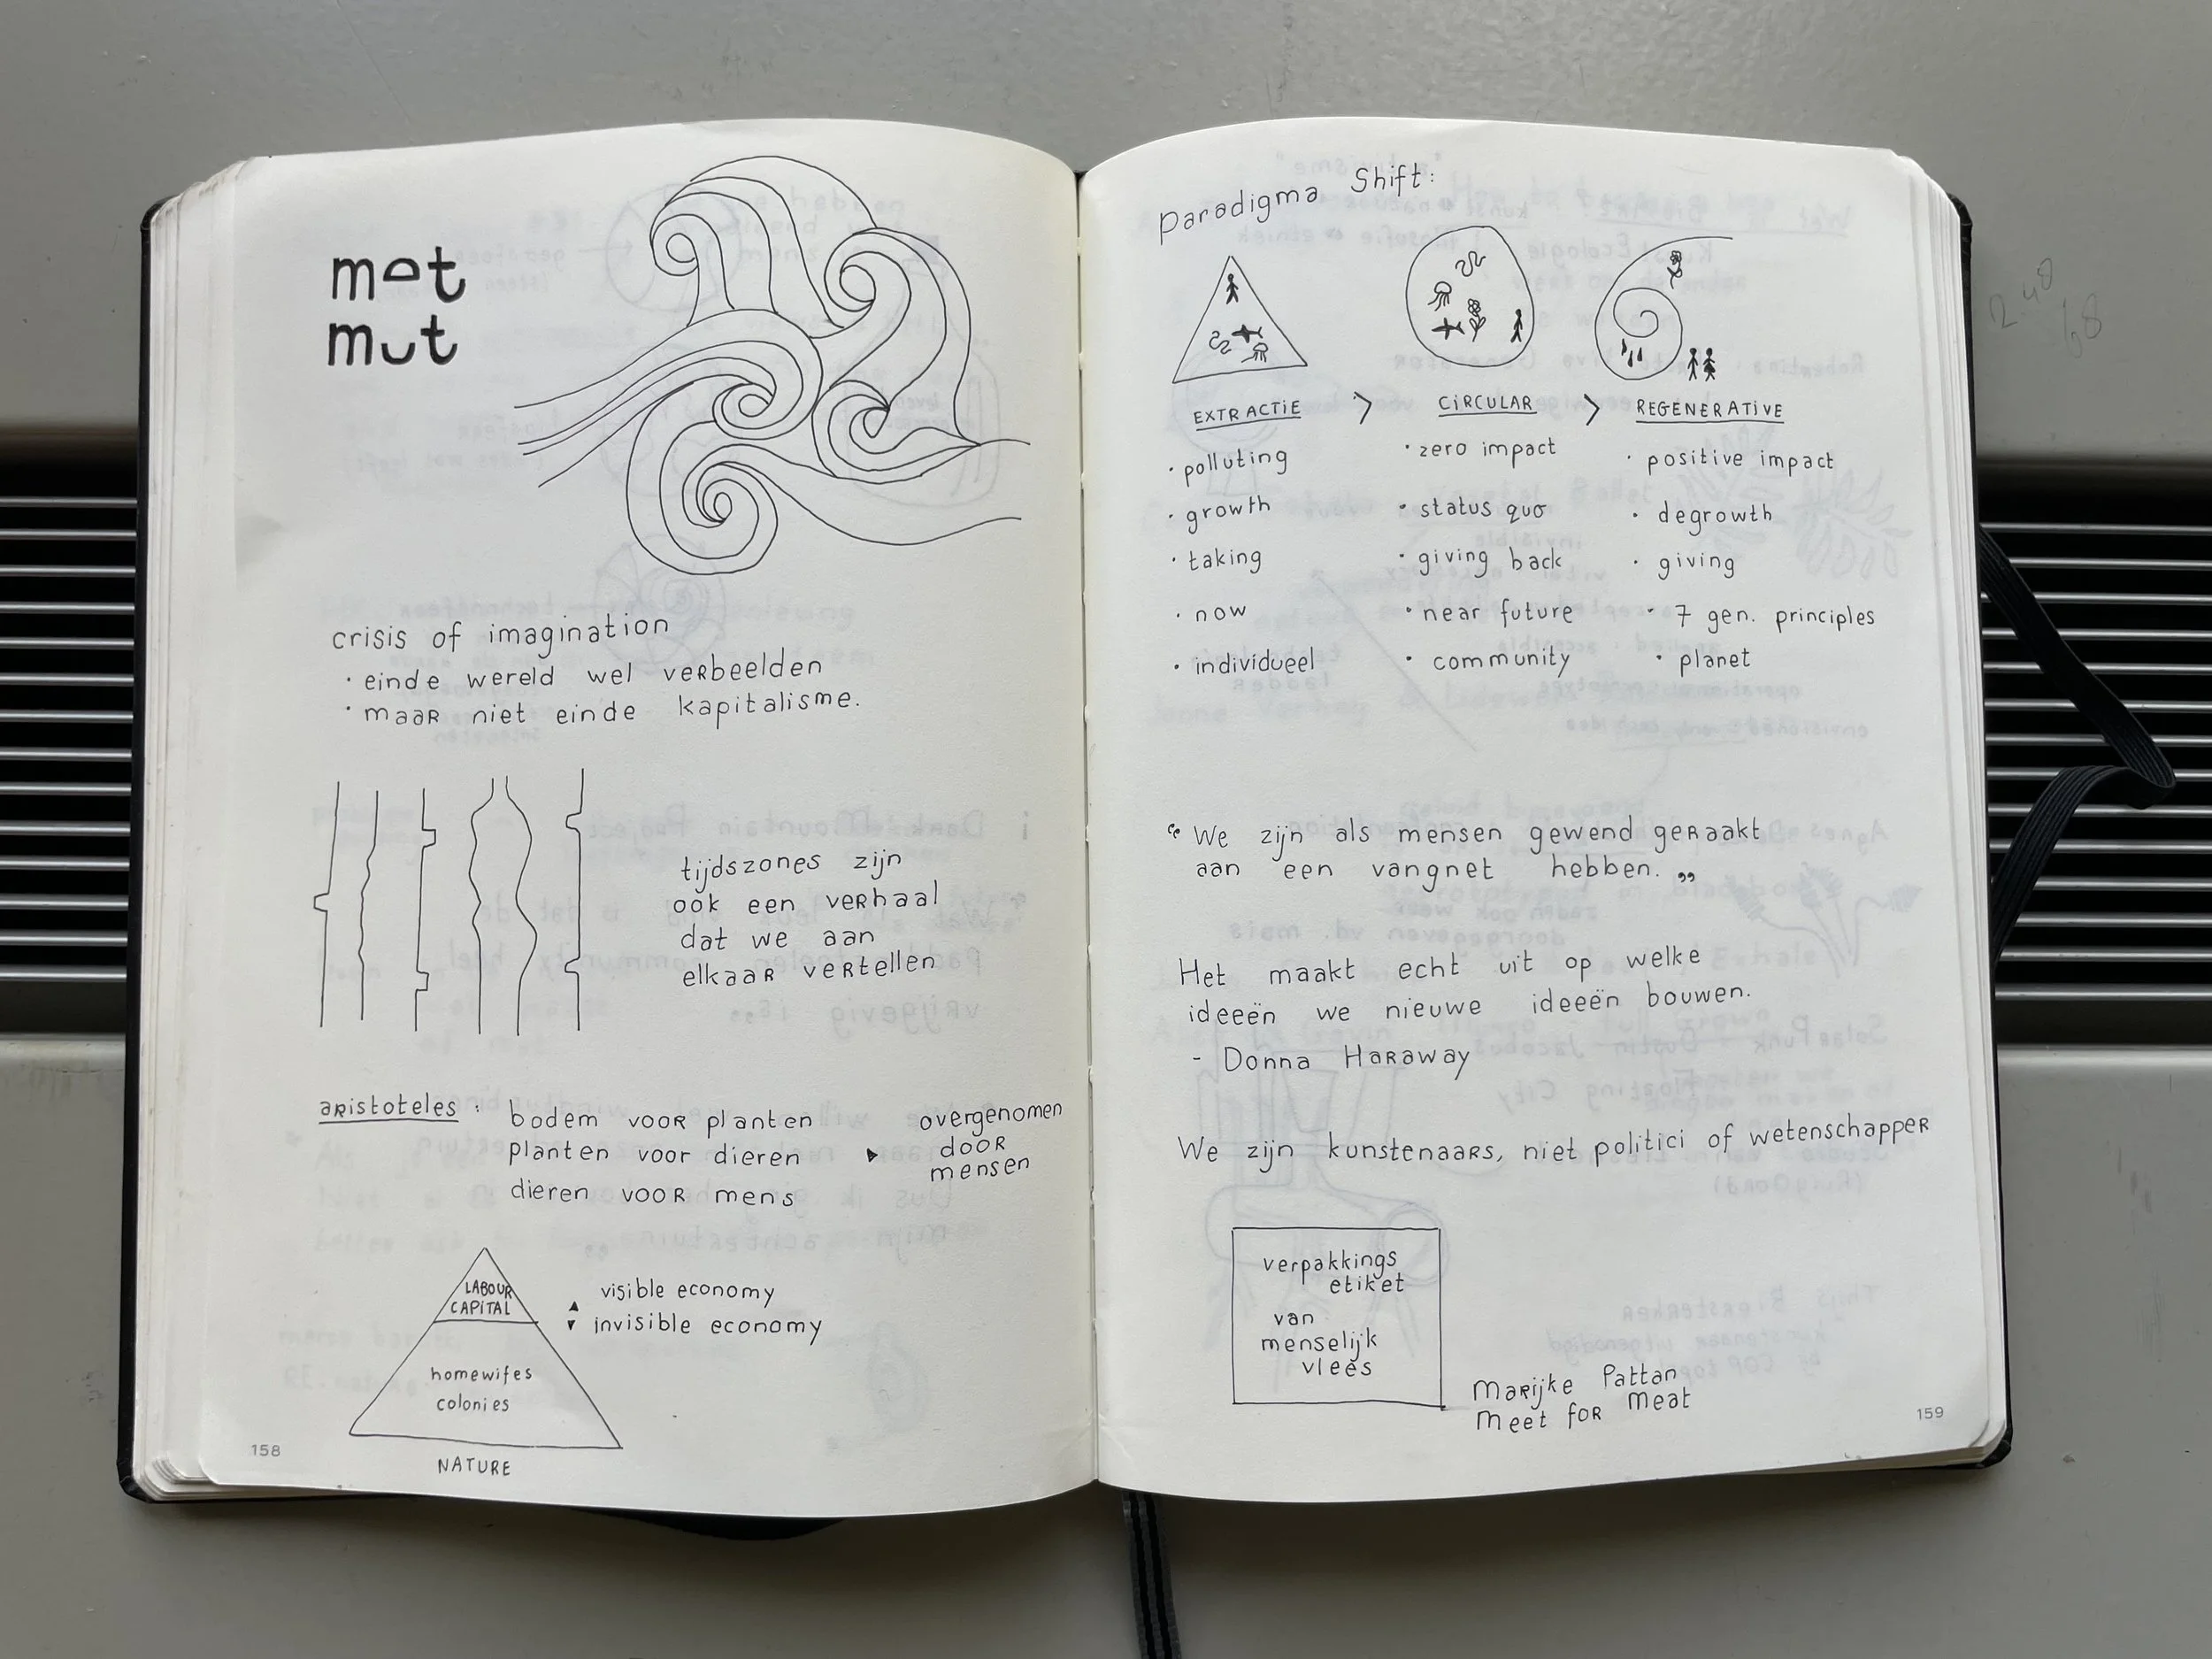 met
mut
crisis of imagination
· einde wereld wel verbeelden
· maar niet einde kapitalisme.
tijdszones zijn
ook een verhaal
dat we aan
elkaar vertellen
aristoteles :
bodem voor planten
planten voor dieren
dieren voor mens
overgenomen
door
mensen
LABOUR
CAPITAL
visible economy
invisible economy
homewifes
colonies
NATURE
158
paradigma shift:
EXTRACTIE > CIRCULAR > REGENERATIVE
· polluting
· growth
· taking
· now
· individueel
· zero impact
· status quo
· giving back
· near future
· community
· positive impact
· degrowth
· giving
· 7 gen. principles
· planet
“ We zijn als mensen gewend geraakt
aan een vangnet hebben. ”
Het maakt echt uit op welke
ideeën we nieuwe ideeën bouwen.
- Donna Haraway
We zijn kunstenaars, niet politici of wetenschapper
verpakkings
etiket
van
menselijk
vlees
Marijke Pattan
Meet for Meat
159